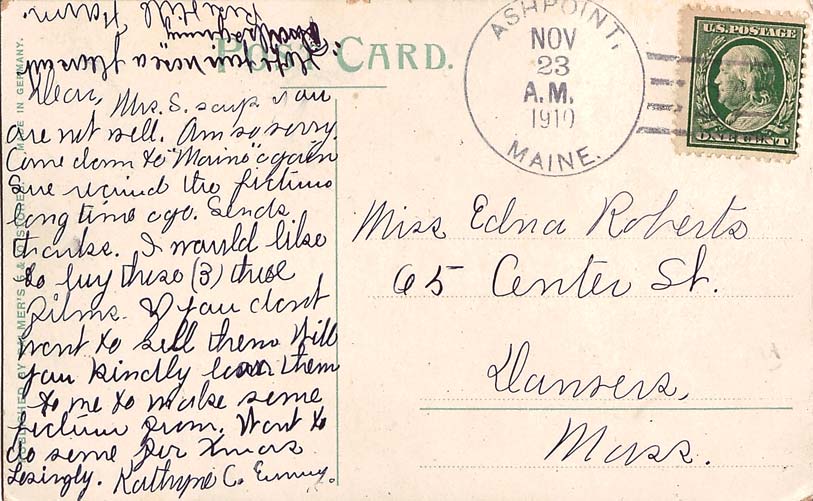 POST CARD.
ASHPOINT,
NOV
23
A.M.
1910
MAINE.
U.S. POSTAGE
ONE CENT
Rose Hill Farm.
Dear, Mrs. S. says you
are not well. Am so sorry.
Come down to "Maine" again
We received the pictures
long time ago. Sends
thanks. I would like
to buy those (3) three
films. If you dont
want to sell them will
you kindly loan them
to me to make some
picture from. Want to
do some for Xmas
Lovingly. Kathryne C. Emery.
Miss Edna Roberts
65 Center St.
Danvers,
Mass.
MADE IN GERMANY.
PUBLISHED BY PALMER'S 5 & 10 STORE